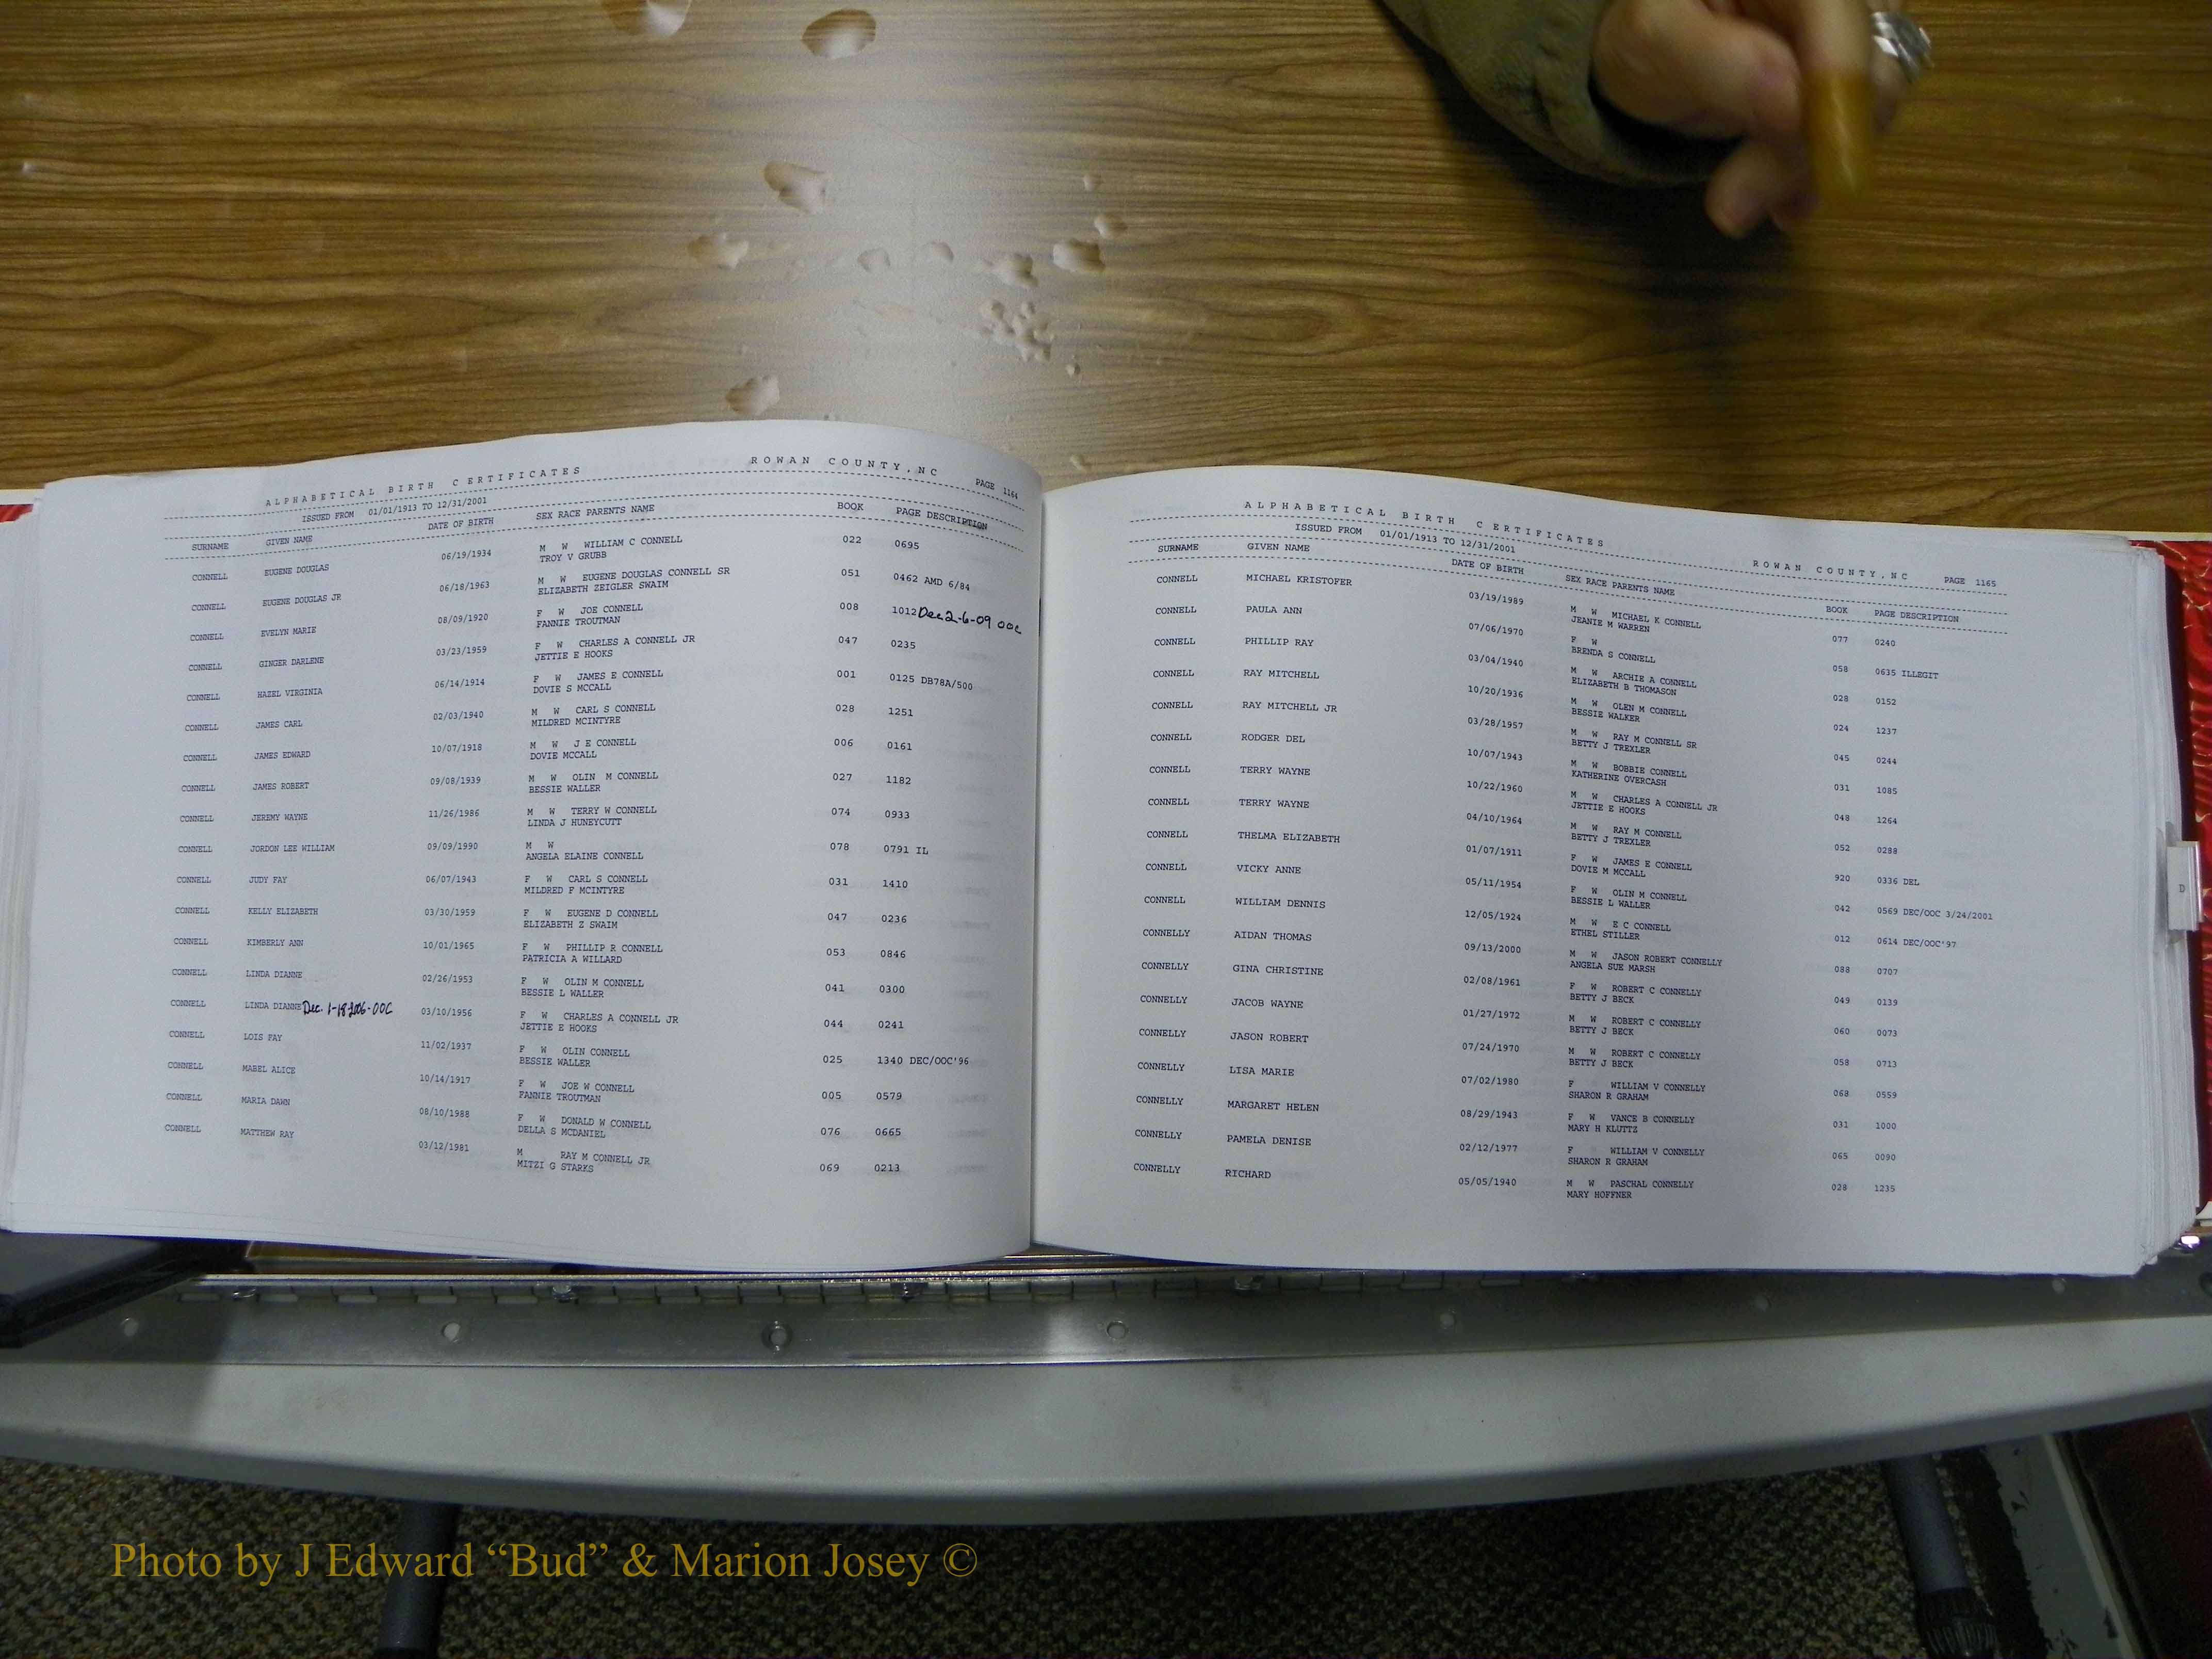 ALPHABETICAL BIRTH CERTIFICATES ROWAN COUNTY,NC PAGE 1164
ISSUED FROM 01/01/1913 TO 12/31/2001
SURNAME GIVEN NAME DATE OF BIRTH SEX RACE PARENTS NAME BOOK PAGE DESCRIPTION
CONNELL EUGENE DOUGLAS 06/19/1934 M W WILLIAM C CONNELL 022 0695
TROY V GRUBB
CONNELL EUGENE DOUGLAS JR 06/18/1963 M W EUGENE DOUGLAS CONNELL SR 051 0462 AMD 6/84
ELIZABETH ZEIGLER SWAIM
CONNELL EVELYN MARIE 08/09/1920 F W JOE CONNELL 008 1012 Dec 2-6-09 OOC
FANNIE TROUTMAN
CONNELL GINGER DARLENE 03/23/1959 F W CHARLES A CONNELL JR 047 0235
JETTIE E HOOKS
CONNELL HAZEL VIRGINIA 06/14/1914 F W JAMES E CONNELL 001 0125 DB78A/500
DOVIE S MCCALL
CONNELL JAMES CARL 02/03/1940 M W CARL S CONNELL 028 1251
MILDRED MCINTYRE
CONNELL JAMES EDWARD 10/07/1918 M W J E CONNELL 006 0161
DOVIE MCCALL
CONNELL JAMES ROBERT 09/08/1939 M W OLIN M CONNELL 027 1182
BESSIE WALLER
CONNELL JEREMY WAYNE 11/26/1986 M W TERRY W CONNELL 074 0933
LINDA J HUNEYCUTT
CONNELL JORDON LEE WILLIAM 09/09/1990 M W 078 0791 IL
ANGELA ELAINE CONNELL
CONNELL JUDY FAY 06/07/1943 F W CARL S CONNELL 031 1410
MILDRED F MCINTYRE
CONNELL KELLY ELIZABETH 03/30/1959 F W EUGENE D CONNELL 047 0236
ELIZABETH Z SWAIM
CONNELL KIMBERLY ANN 10/01/1965 F W PHILLIP R CONNELL 053 0846
PATRICIA A WILLARD
CONNELL LINDA DIANNE 02/26/1953 F W OLIN M CONNELL 041 0300
BESSIE L WALLER
CONNELL LINDA DIANNE Dec. 1-18-2006-OOC 03/10/1956 F W CHARLES A CONNELL JR 044 0241
JETTIE E HOOKS
CONNELL LOIS FAY 11/02/1937 F W OLIN CONNELL 025 1340 DEC/OOC'96
BESSIE WALLER
CONNELL MABEL ALICE 10/14/1917 F W JOE W CONNELL 005 0579
FANNIE TROUTMAN
CONNELL MARIA DAWN 08/10/1988 F W DONALD W CONNELL 076 0665
DELLA S MCDANIEL
CONNELL MATTHEW RAY 03/12/1981 M RAY M CONNELL JR 069 0213
MITZI G STARKS
ALPHABETICAL BIRTH CERTIFICATES ROWAN COUNTY,NC PAGE 1165
ISSUED FROM 01/01/1913 TO 12/31/2001
SURNAME GIVEN NAME DATE OF BIRTH SEX RACE PARENTS NAME BOOK PAGE DESCRIPTION
CONNELL MICHAEL KRISTOFER 03/19/1989 M W MICHAEL K CONNELL 077 0240
JEANIE M WARREN
CONNELL PAULA ANN 07/06/1970 F W 058 0635 ILLEGIT
BRENDA S CONNELL
CONNELL PHILLIP RAY 03/04/1940 M W ARCHIE A CONNELL 028 0152
ELIZABETH B THOMASON
CONNELL RAY MITCHELL 10/20/1936 M W OLEN M CONNELL 024 1237
BESSIE WALKER
CONNELL RAY MITCHELL JR 03/28/1957 M W RAY M CONNELL SR 045 0244
BETTY J TREXLER
CONNELL RODGER DEL 10/07/1943 M W BOBBIE CONNELL 031 1085
KATHERINE OVERCASH
CONNELL TERRY WAYNE 10/22/1960 M W CHARLES A CONNELL JR 048 1264
JETTIE E HOOKS
CONNELL TERRY WAYNE 04/10/1964 M W RAY M CONNELL 052 0288
BETTY J TREXLER
CONNELL THELMA ELIZABETH 01/07/1911 F W JAMES E CONNELL 920 0336 DEL
DOVIE M MCCALL
CONNELL VICKY ANNE 05/11/1954 F W OLIN M CONNELL 042 0569 DEC/OOC 3/24/2001
BESSIE L WALLER
CONNELL WILLIAM DENNIS 12/05/1924 M W E C CONNELL 012 0614 DEC/OOC'97
ETHEL STILLER
CONNELLY AIDAN THOMAS 09/13/2000 M W JASON ROBERT CONNELLY 088 0707
ANGELA SUE MARSH
CONNELLY GINA CHRISTINE 02/08/1961 F W ROBERT C CONNELLY 049 0139
BETTY J BECK
CONNELLY JACOB WAYNE 01/27/1972 M W ROBERT C CONNELLY 060 0073
BETTY J BECK
CONNELLY JASON ROBERT 07/24/1970 M W ROBERT C CONNELLY 058 0713
BETTY J BECK
CONNELLY LISA MARIE 07/02/1980 F WILLIAM V CONNELLY 068 0559
SHARON R GRAHAM
CONNELLY MARGARET HELEN 08/29/1943 F W VANCE B CONNELLY 031 1000
MARY H KLUTTZ
CONNELLY PAMELA DENISE 02/12/1977 F WILLIAM V CONNELLY 065 0090
SHARON R GRAHAM
CONNELLY RICHARD 05/05/1940 M W PASCHAL CONNELLY 028 1235
MARY HOFFNER
D
Photo by J Edward “Bud” & Marion Josey ©